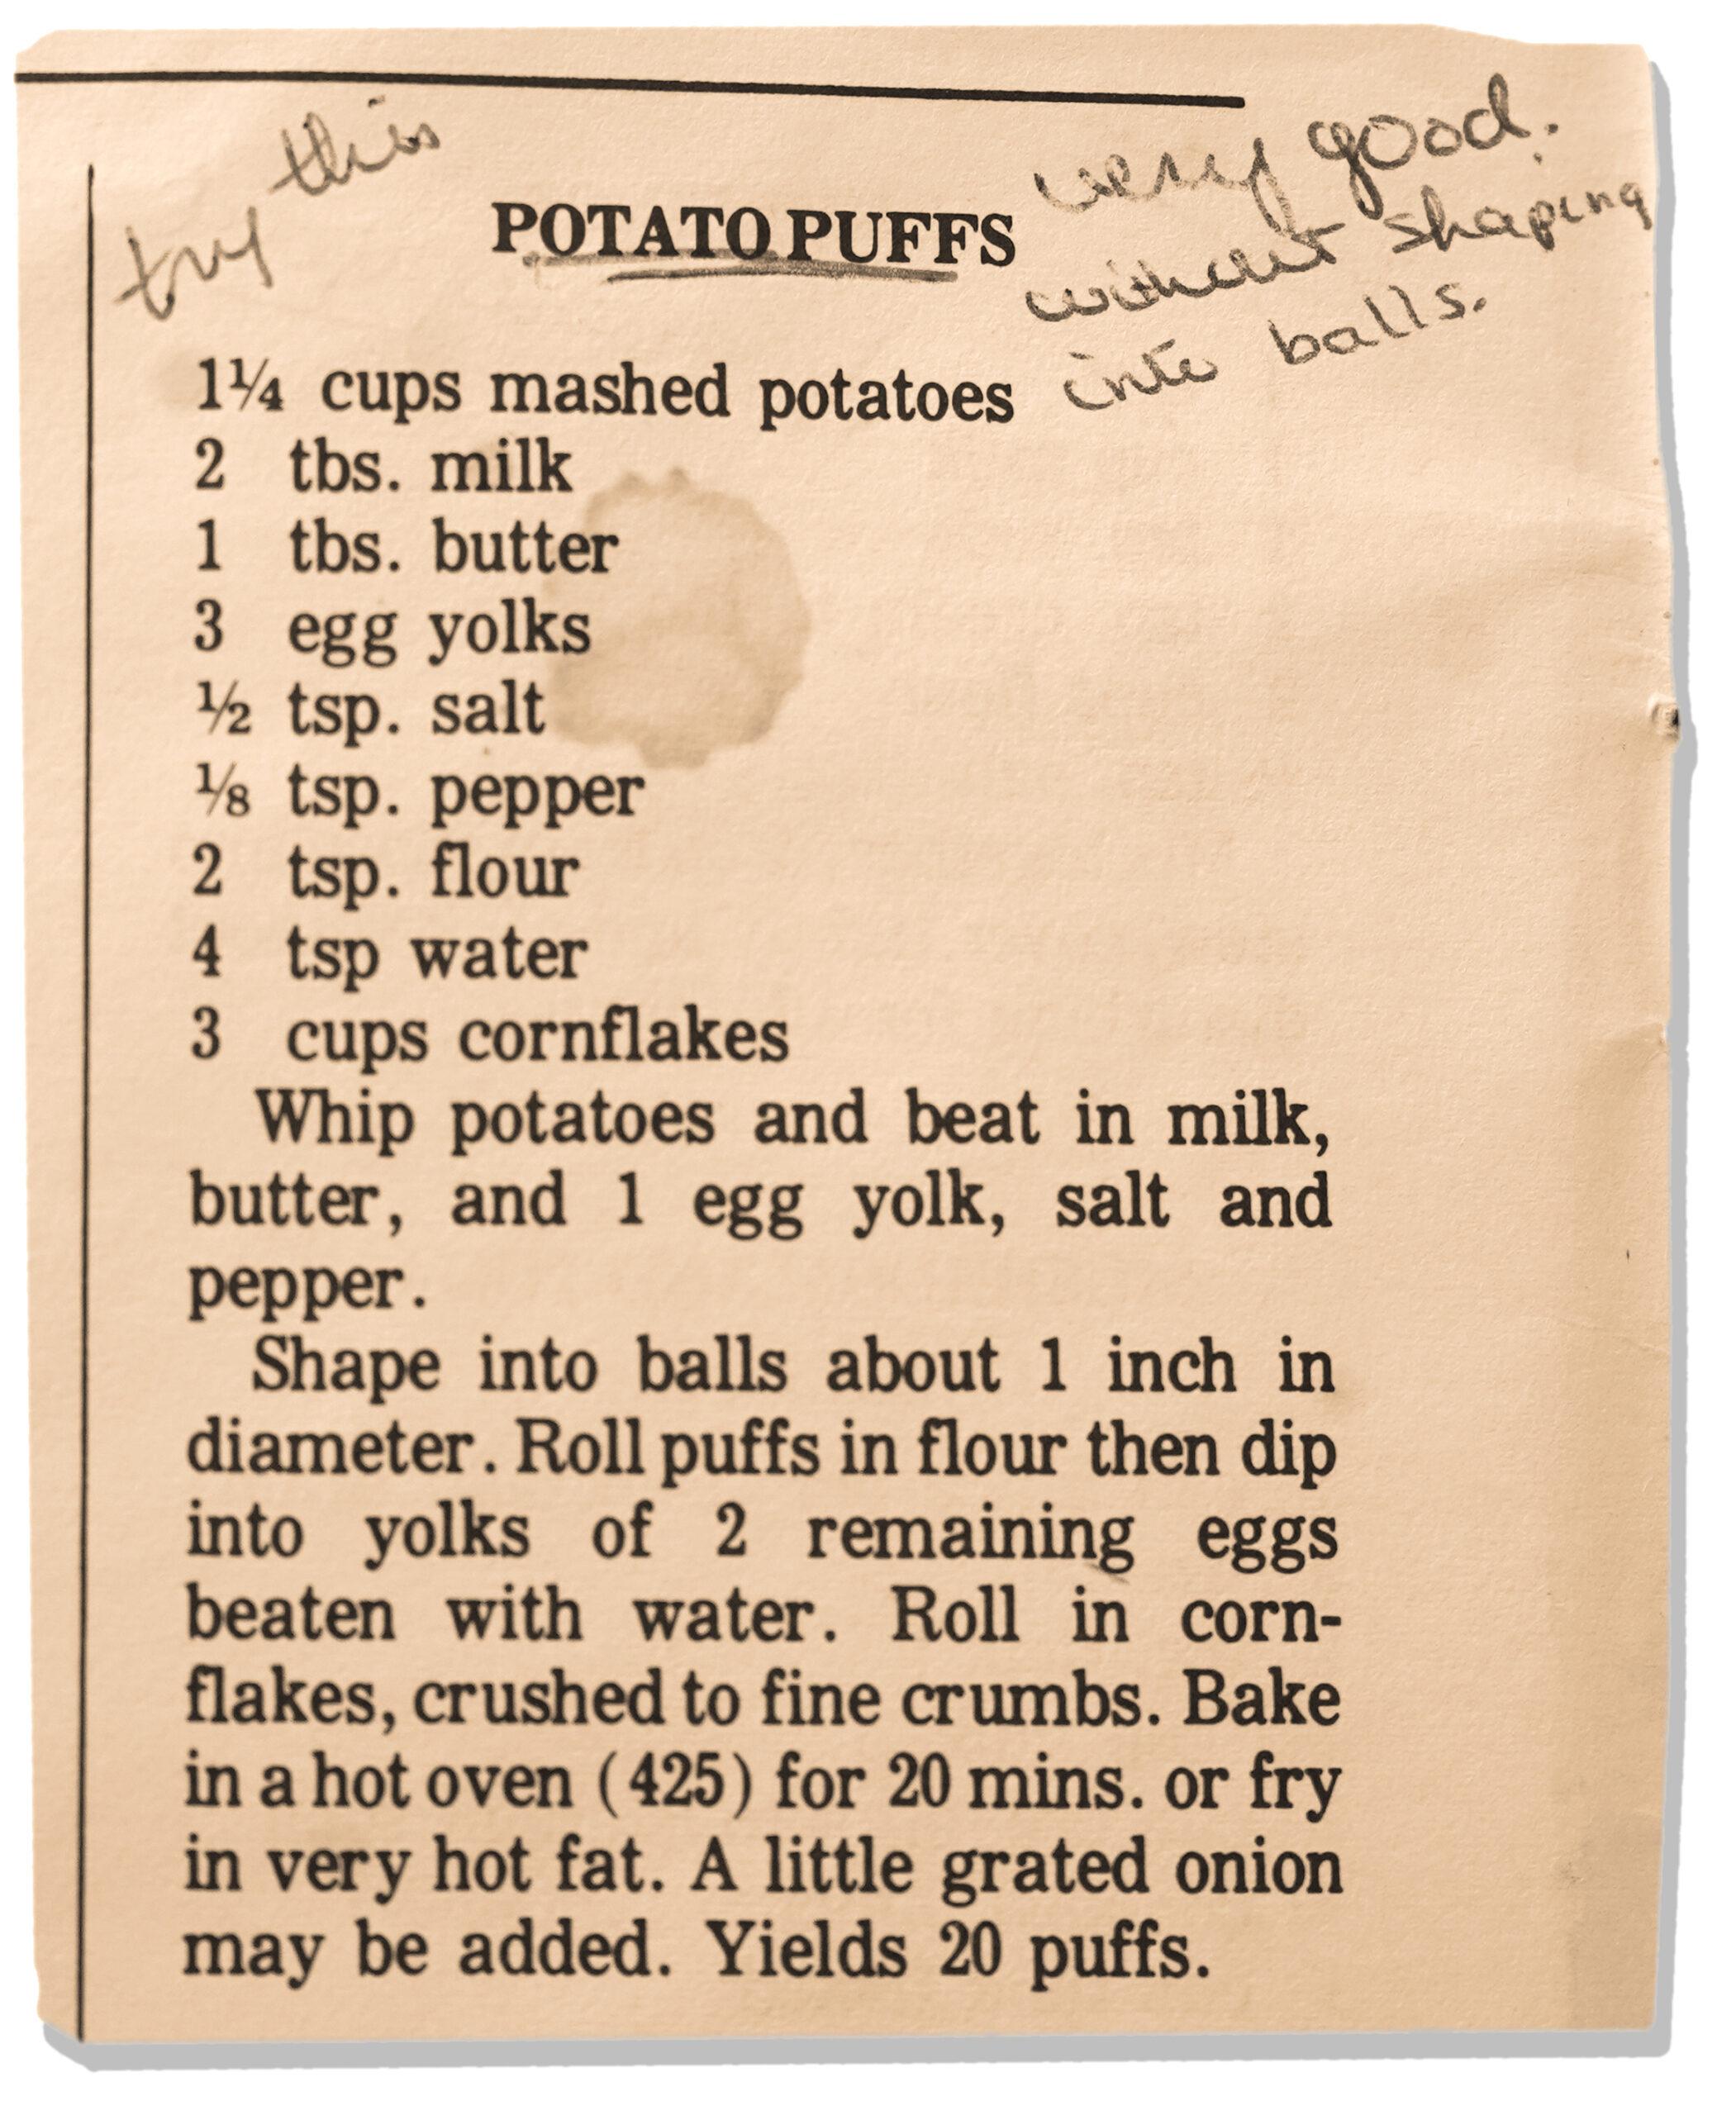 try this
very good.
without shaping
into balls.
POTATO PUFFS
1¼ cups mashed potatoes
2 tbs. milk
1 tbs. butter
3 egg yolks
½ tsp. salt
⅛ tsp. pepper
2 tsp. flour
4 tsp water
3 cups cornflakes
Whip potatoes and beat in milk,
butter, and 1 egg yolk, salt and
pepper.
Shape into balls about 1 inch in
diameter. Roll puffs in flour then dip
into yolks of 2 remaining eggs
beaten with water. Roll in corn-
flakes, crushed to fine crumbs. Bake
in a hot oven (425) for 20 mins. or fry
in very hot fat. A little grated onion
may be added. Yields 20 puffs.